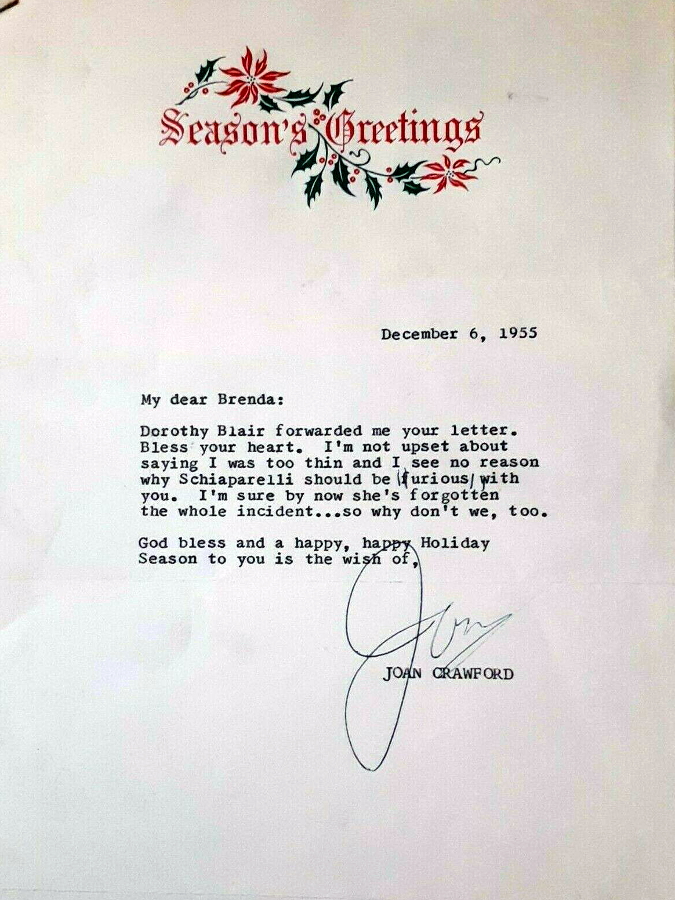 Season's Greetings
December 6, 1955
My dear Brenda:
Dorothy Blair forwarded me your letter.
Bless your heart. I'm not upset about
saying I was too thin and I see no reason
why Schiaparelli should be furious with
you. I'm sure by now she's forgotten
the whole incident...so why don't we, too.
God bless and a happy, happy Holiday
Season to you is the wish of,
Joan
JOAN CRAWFORD